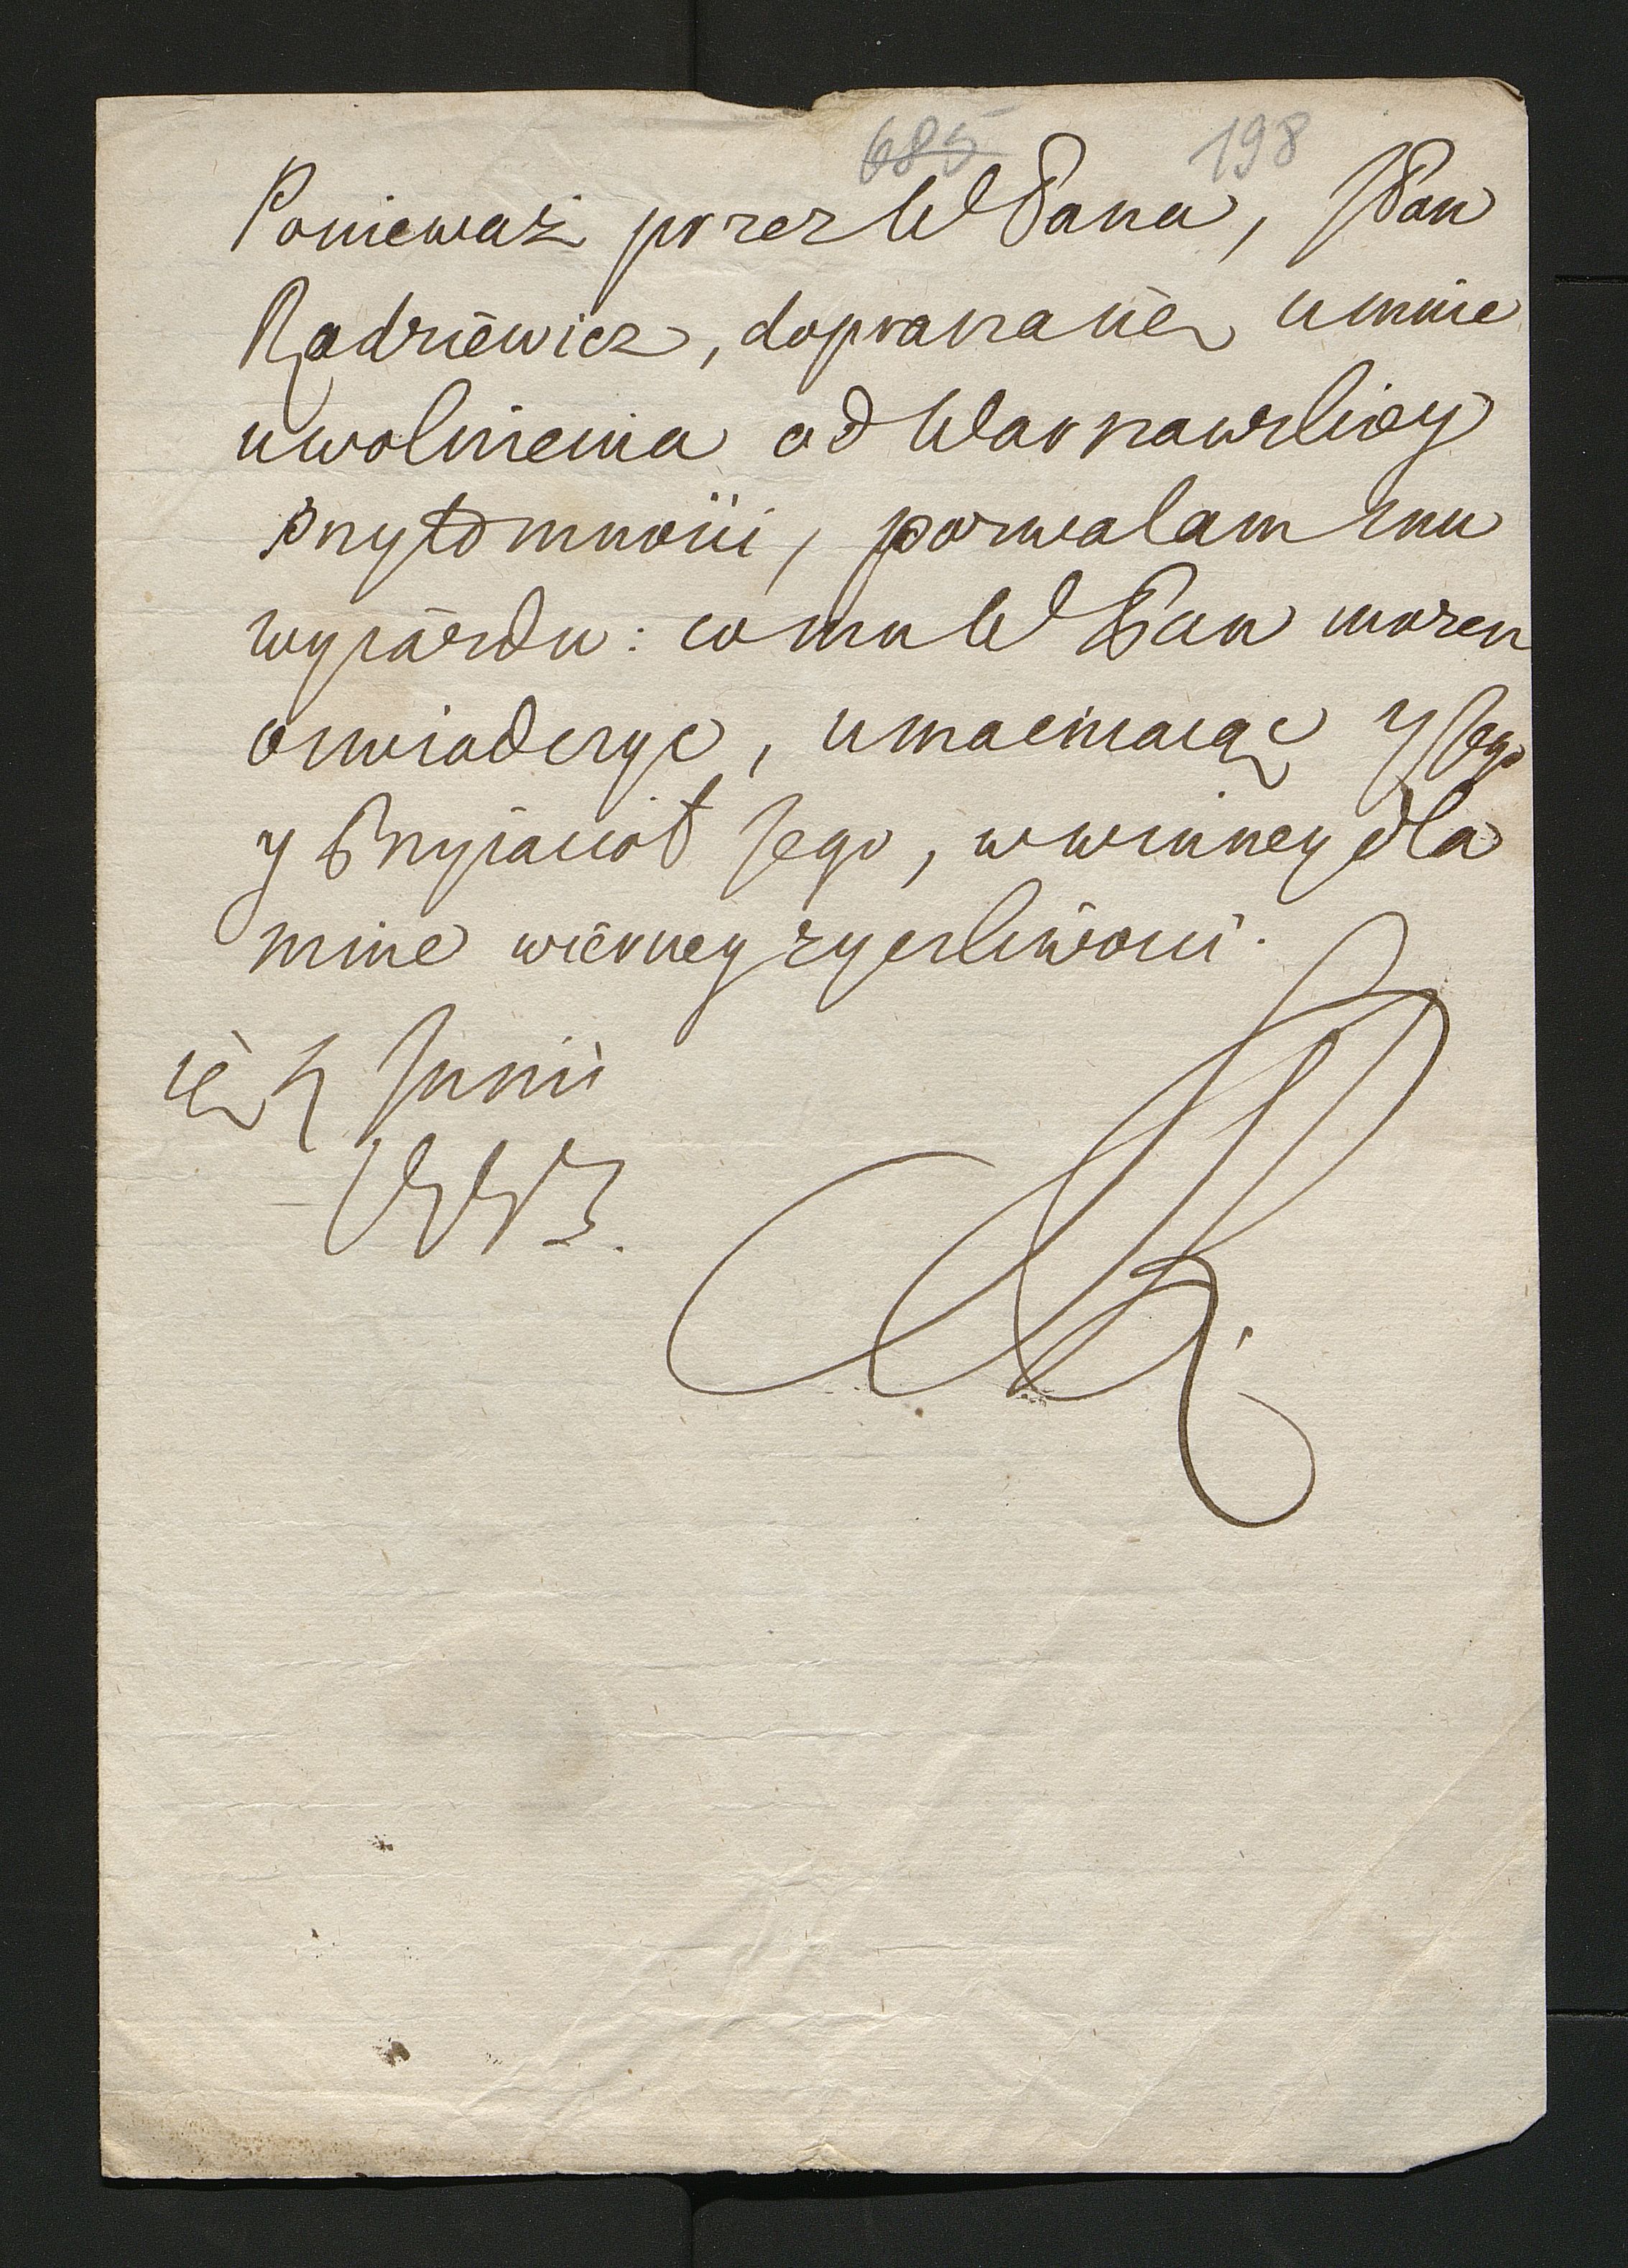 685 198
Ponieważ przez W Pana, JPan
Radziéwicz, doprasza się u mnie
uwolnienia od Warszawskiey
Przytomności, pozwalam mu
wyiázdu: co mu W Pan możesz
oswiadczyc, umacniaiąc y Jego
y Przyiaciół Jego, w winney dla
mnie wiérney zyczliwosci.
Junii